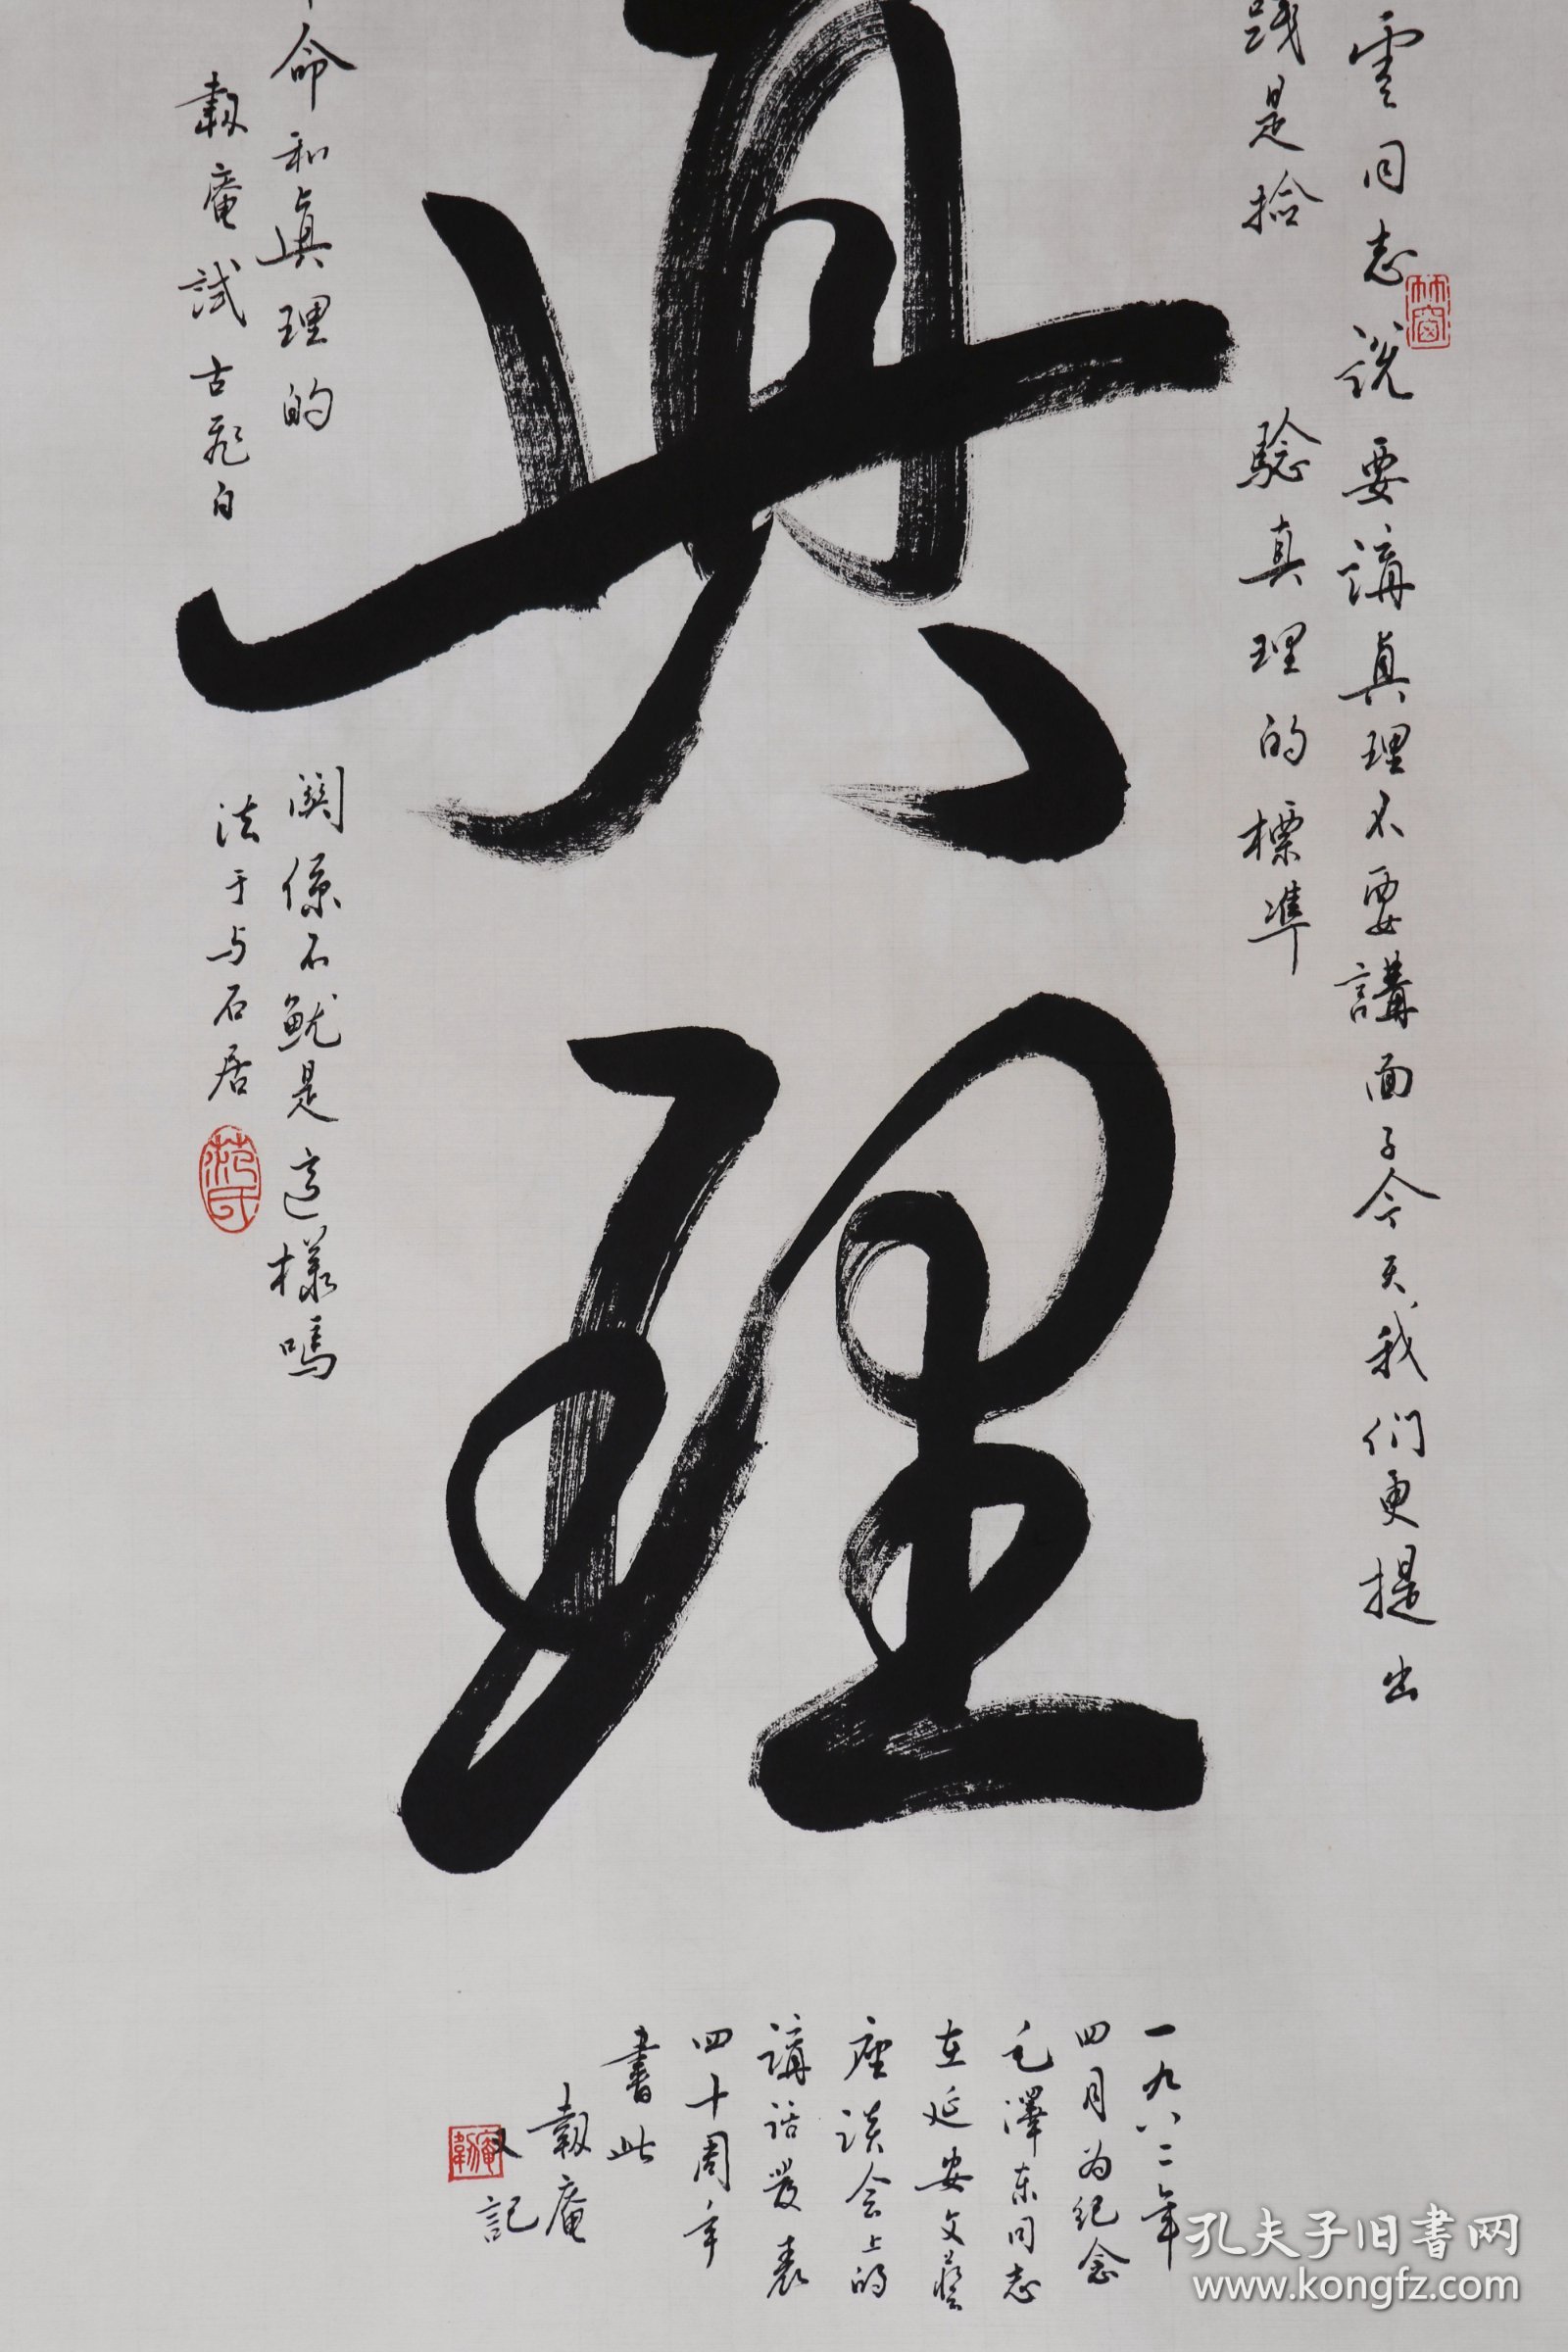 真理
雲同志説要講真理不要講面子今天我們更提出
踐是撿驗真理的標準
命和眞理的關係不就是這樣嗎
龯庵試古飛白法于与石居
一九八二年
四月为纪念
毛澤东同志
在延安文藝
座談会上的
講話發表
四十周年
書此
庵
又記
竹窗
范氏
孔夫子旧书网
www.kongfz.com